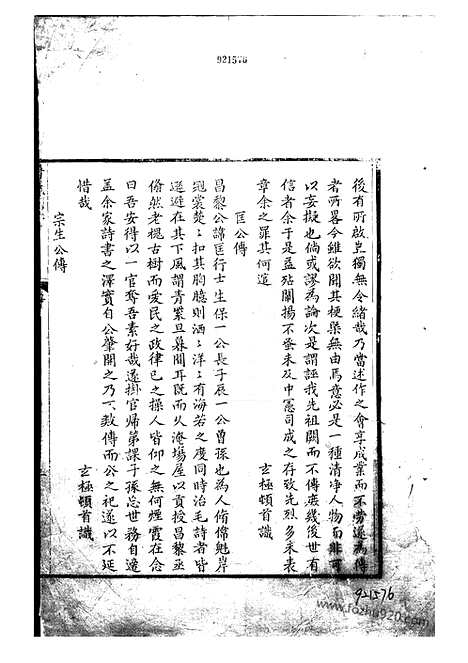 921576
後有所啟豈獨無令緒哉乃當述作之會享成業而不勞遂為傳
者所畧今雖欲闡其梗槩無由焉意必是一種清净人物而非可
以妄擬也倘或謬為論次是謂誣我先祖闕而不傳庶幾後世有
信者余于是益殆闡揚不蚤未及中憲司成之存致先烈多未表
章余之罪其何逭 玄極頓首識
匡公傳
昌黎公諱匡行士生保一公長子辰一公曾孫也為人脩偉魁岸
冠裳焚〻扣其胸臆則洒〻洋〻有海若之度同時治毛詩者皆
遜避在其下風謂青紫旦暮間耳既而久淹場屋以貢授昌黎丞
偹然老槐古樹而愛民之政律已之操人皆仰之無何煙霞在念
曰吾安得以一官奪吾素好哉遂掛官歸第課子孫忘世務自適
盖余家詩書之澤實自公肇開之乃不數傳而公之祀遂以不延
惜哉 玄極頓首識
宗生公傳
921576
www.fozhu920.com